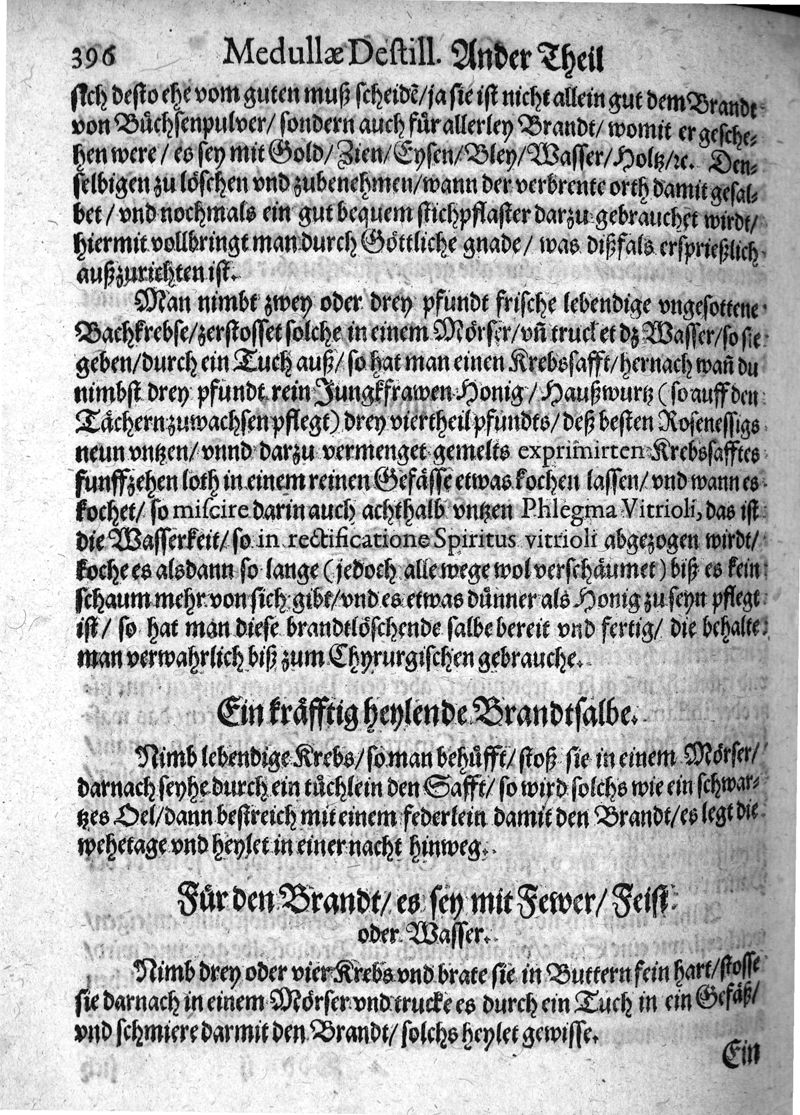 396 Medullæ Destill. Ander Theil
sich desto ehe vom guten muß scheidẽ/ja sie ist nicht allein gut dem Brandt
von Büchsenpulver/ sondern auch für allerley Brandt/ womit er gesche-
hen were / es sey mit Gold/ Zien/ Eysen/ Bley/ Wasser/ Holtz/ ꝛc. Den-
selbigen zu löschen vnd zubenehmen/ wann der verbrente orth damit gesal-
bet / vnd nochmals ein gut bequem stichpflaster darzu gebrauchet wirdt/
hiermit vollbringt man durch Göttliche gnade/ was dißfals ersprießlich
außzurichten ist.
Man nimbt zwey oder drey pfundt frische lebendige vngesottene
Bachkrebse/ zerstosset solche in einem Mörser/ vñ trucket dz Wasser/ so sie
geben/ durch ein Tuch auß/ so hat man einen Krebssafft/ hernach wañ du
nimbst drey pfundt rein Jungkfrawen Honig/ Haußwurtz (so auff den
Tächern zuwachsen pflegt) drey viertheil pfundts/ deß besten Rosenessigs
neun vntzen/ vnnd darzu vermenget gemelts exprimirten Krebssafftes
funffzehen loth in einem reinen Gefässe etwas kochen lassen/ vnd wann es
kochet/ so miscire darin auch achthalb vntzen Phlegma Vitrioli, das ist
die Wasserkeit/ so in rectificatione Spiritus vitrioli abgezogen wirdt/
koche es alsdann so lange (jedoch allewege wol verschäumet) biß es kein
schaum mehr von sich gibt/ vnd es etwas dünner als Honig zu seyn pflegt
ist/ so hat man diese brandtlöschende salbe bereit vnd fertig/ die behalte
man verwahrlich biß zum Chyrurgischen gebrauche.
Ein kräfftig heylende Brandtsalbe.
Nimb lebendige Krebs/ so man behüfft/ stoß sie in einem Mörser/
darnach seyhe durch ein tüchlein den Safft/ so wird solchs wie ein schwar-
tzes Oel/ dann bestreich mit einem federlein damit den Brandt/ es legt die
wehetage vnd heylet in einer nacht hinweg.
Für den Brandt/ es sey mit Fewer/ Feist
oder Wasser.
Nimb drey oder vier Krebs vnd brate sie in Buttern fein hart/ stosse
sie darnach in einem Mörser vnd trucke es durch ein Tuch in ein Gefäß/
vnd schmiere darmit den Brandt/ solchs heylet gewisse.
Ein